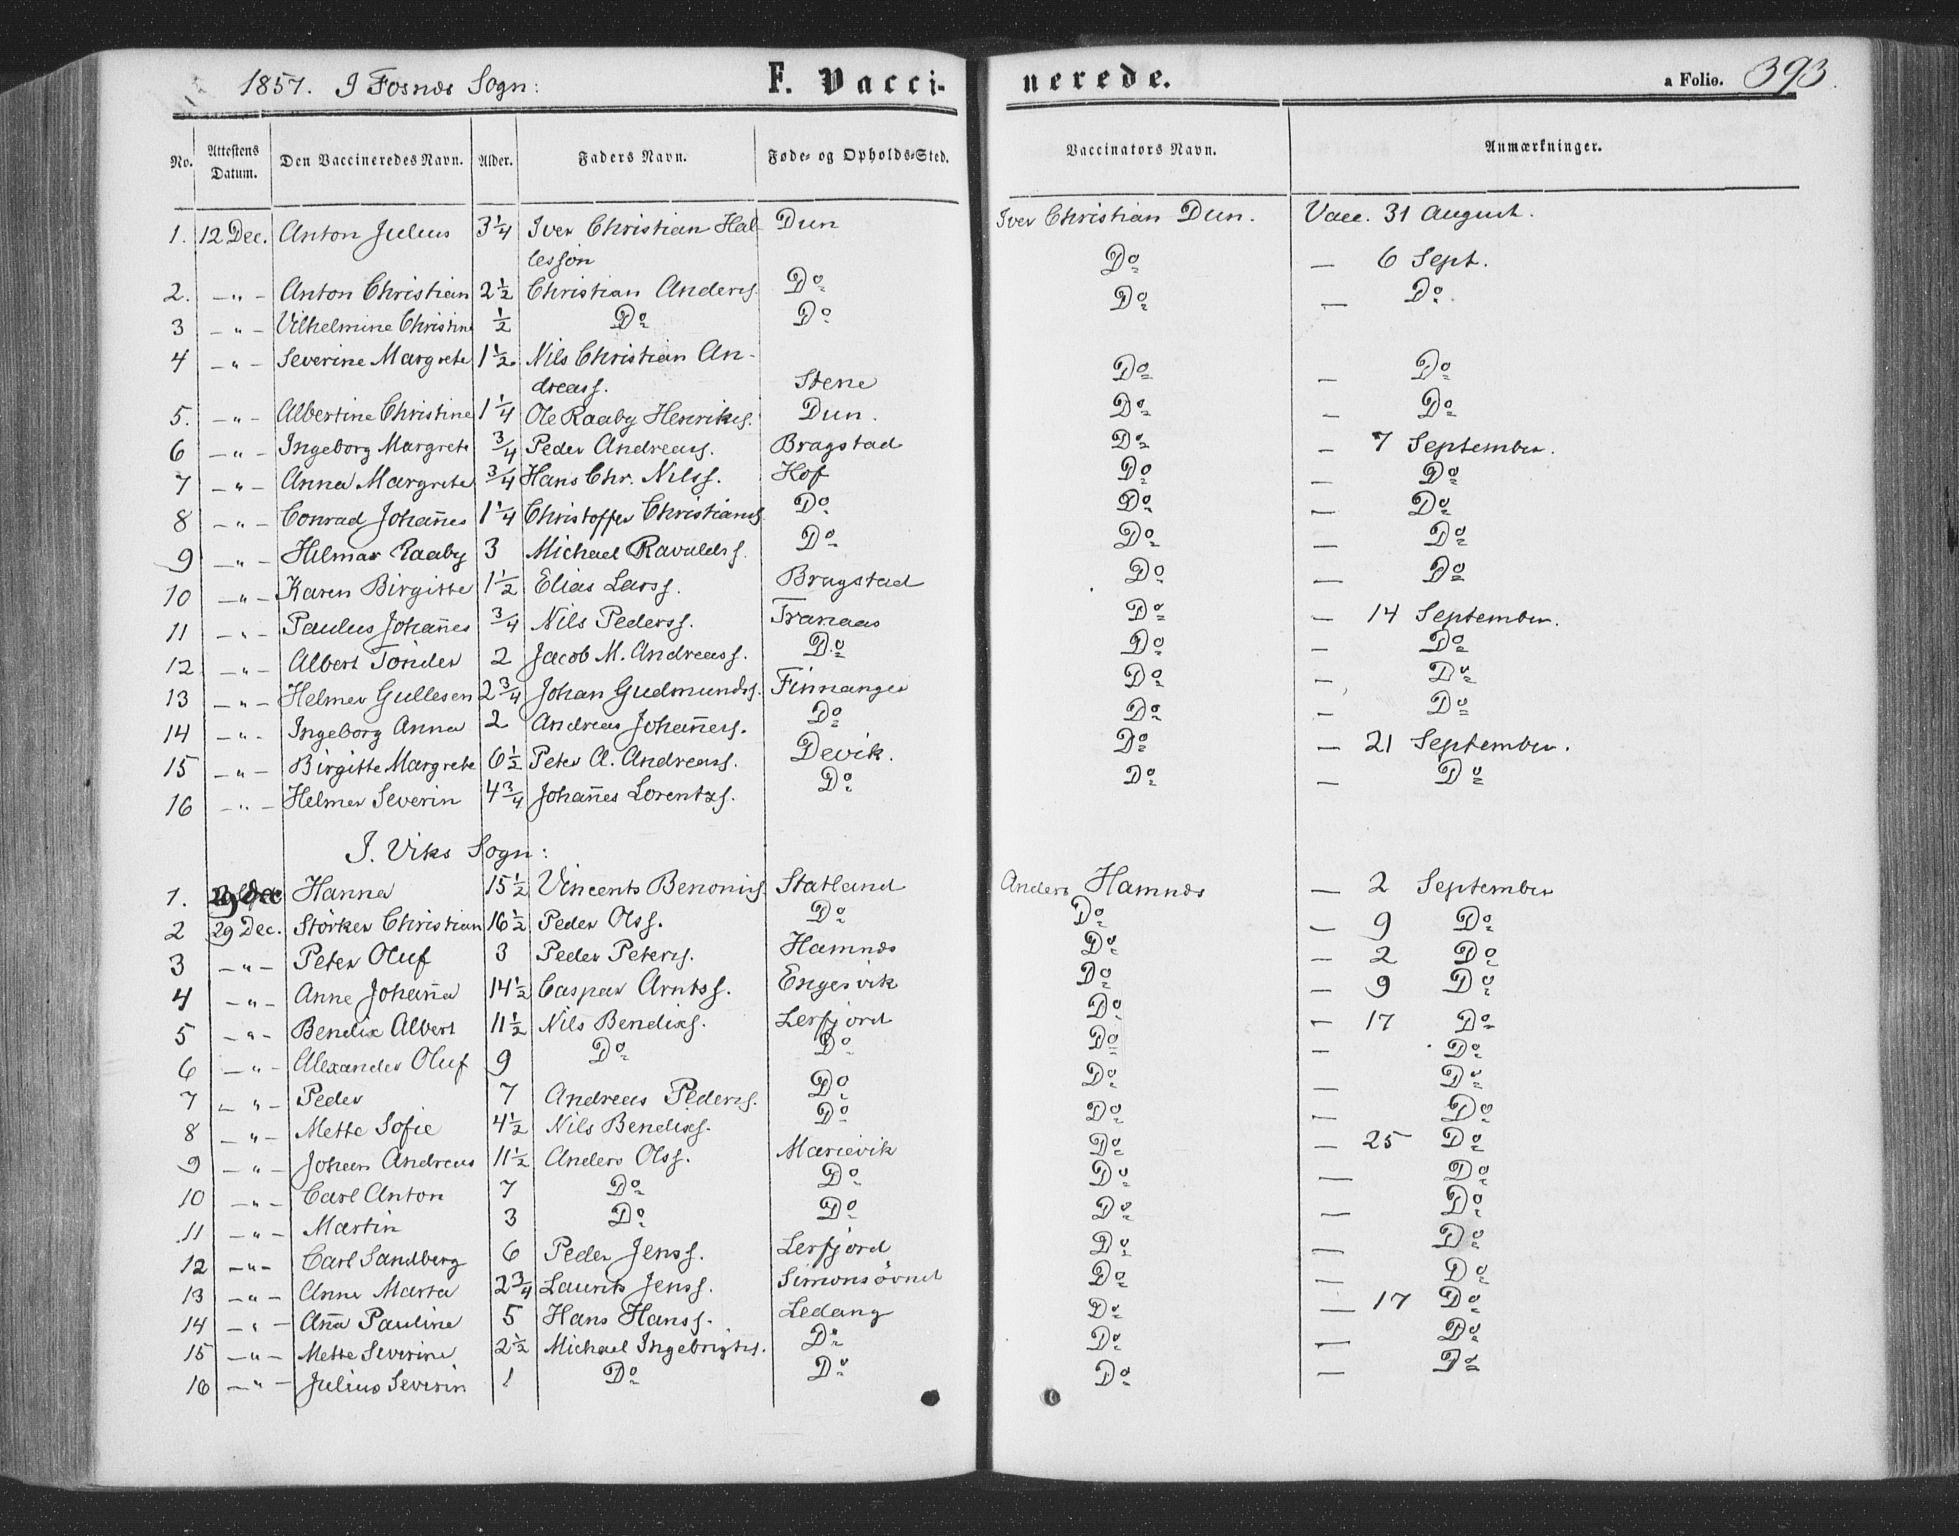 1857. I Fosnæs Sogn: F. Vacci- nerede. a Folio. 393.
No. Attestens Datum. Den Vaccineredes Navn. Alder. Faders Navn. Føde- og Opholds-Sted. Vaccinators Navn. Anmærkninger.
1. 12 Dec. Anton Julius 3 1/4 Iver Christian Hal- Dun Iver Christian Dun. Vacc. 31 August.
lesson
2. -"- Anton Christian 2 1/2 Christian Anders. Do Do — 6 Sept.
3 -"- Vilhelmine Christine 1/2 Do Do Do — Do.
4 -"- Severine Margrete 1 1/2 Nils Christian An-
dreass. Stene Do — Do
5. -"- Albertine Christine 1 1/4 Ole Raaby Henriks. Dun. Do — Do
6 -"- Ingeborg Margrete 3/4 Peder Andreass. Bragstad Do — 7 September.
7 -"- Anna Margrete 3/4 Hans Chr. Nilss. Hof Do — Do
8 -"- Conrad Johan̄es 1 1/4 Christoffer Christians. Do Do — Do
9 -"- Hilmar Raaby 3 Michael Ravalds. Do Do — Do
10 -"- Karen Birgitte 1 1/2 Elias Larss. Bragstad Do — Do
11 -"- Paulus Johan̄es 3/4 Nils Pederss. Tranaas Do — 14 September.
12 -"- Albert Tönder 2 Jacob M. Andreass. Do Do — Do
13 -"- Helmer Gullesen 2 3/4 Johan Gudmunds. Finnanger Do — Do
14 -"- Ingeborg Anna 2 Andreas Johan̄ess. Do Do — Do
15 -"- Birgitte Margrete 6 1/2 Peter A. Andreass. Devik. Do — 21 September.
16 -"- Helmer Severin 4 3/4 Johan̄es Lorentzs. Do Do — Do
I. Viks Sogn:
1. 29 Dec Hanna 15 1/2 Vincents Benonis. Statland Anders Hamnæs — 2 September
2 29 Dec. Störker Christian 16 1/2 Peder Olss. Do Do — 9 Do
3 -"- Peter Oluf 3 Peder Peters. Hamnæs Do — 2 Do
4 -"- Anne Johan̄a 14 1/2 Caspar Arntss. Engesvik Do — 9 Do
5 -"- Bendix Albert 11 1/2 Nils Bendixs. Lerfjord Do — 17 Do
6 -"- Alexander Oluf 9 Do Do Do — Do
7 -"- Peder 7 Andreas Peders. Do Do — Do
8 -"- Mette Sofie 4 1/2 Nils Bendixs. Do Do — Do
9 -"- Johan Andreas 11 1/2 Anders Olss. Marievik Do — 25 Do
10 -"- Carl Anton 7 Do Do Do — Do
11 -"- Martin 3 Do Do Do — Do
12 -"- Carl Sandberg 6 Peder Jenss. Lerfjord Do — Do
13 -"- Anne Marta 2 3/4 Laurits Jenss. Simonsövnet Do — Do
14 -"- An̄a Pauline 5 Hans Hanss. Ledang Do — 17 Do
15 -"- Mette Severine 2 1/2 Michael Ingebrigts. Do Do — Do
16 -"- Julius Severin 1 Do Do Do — Do